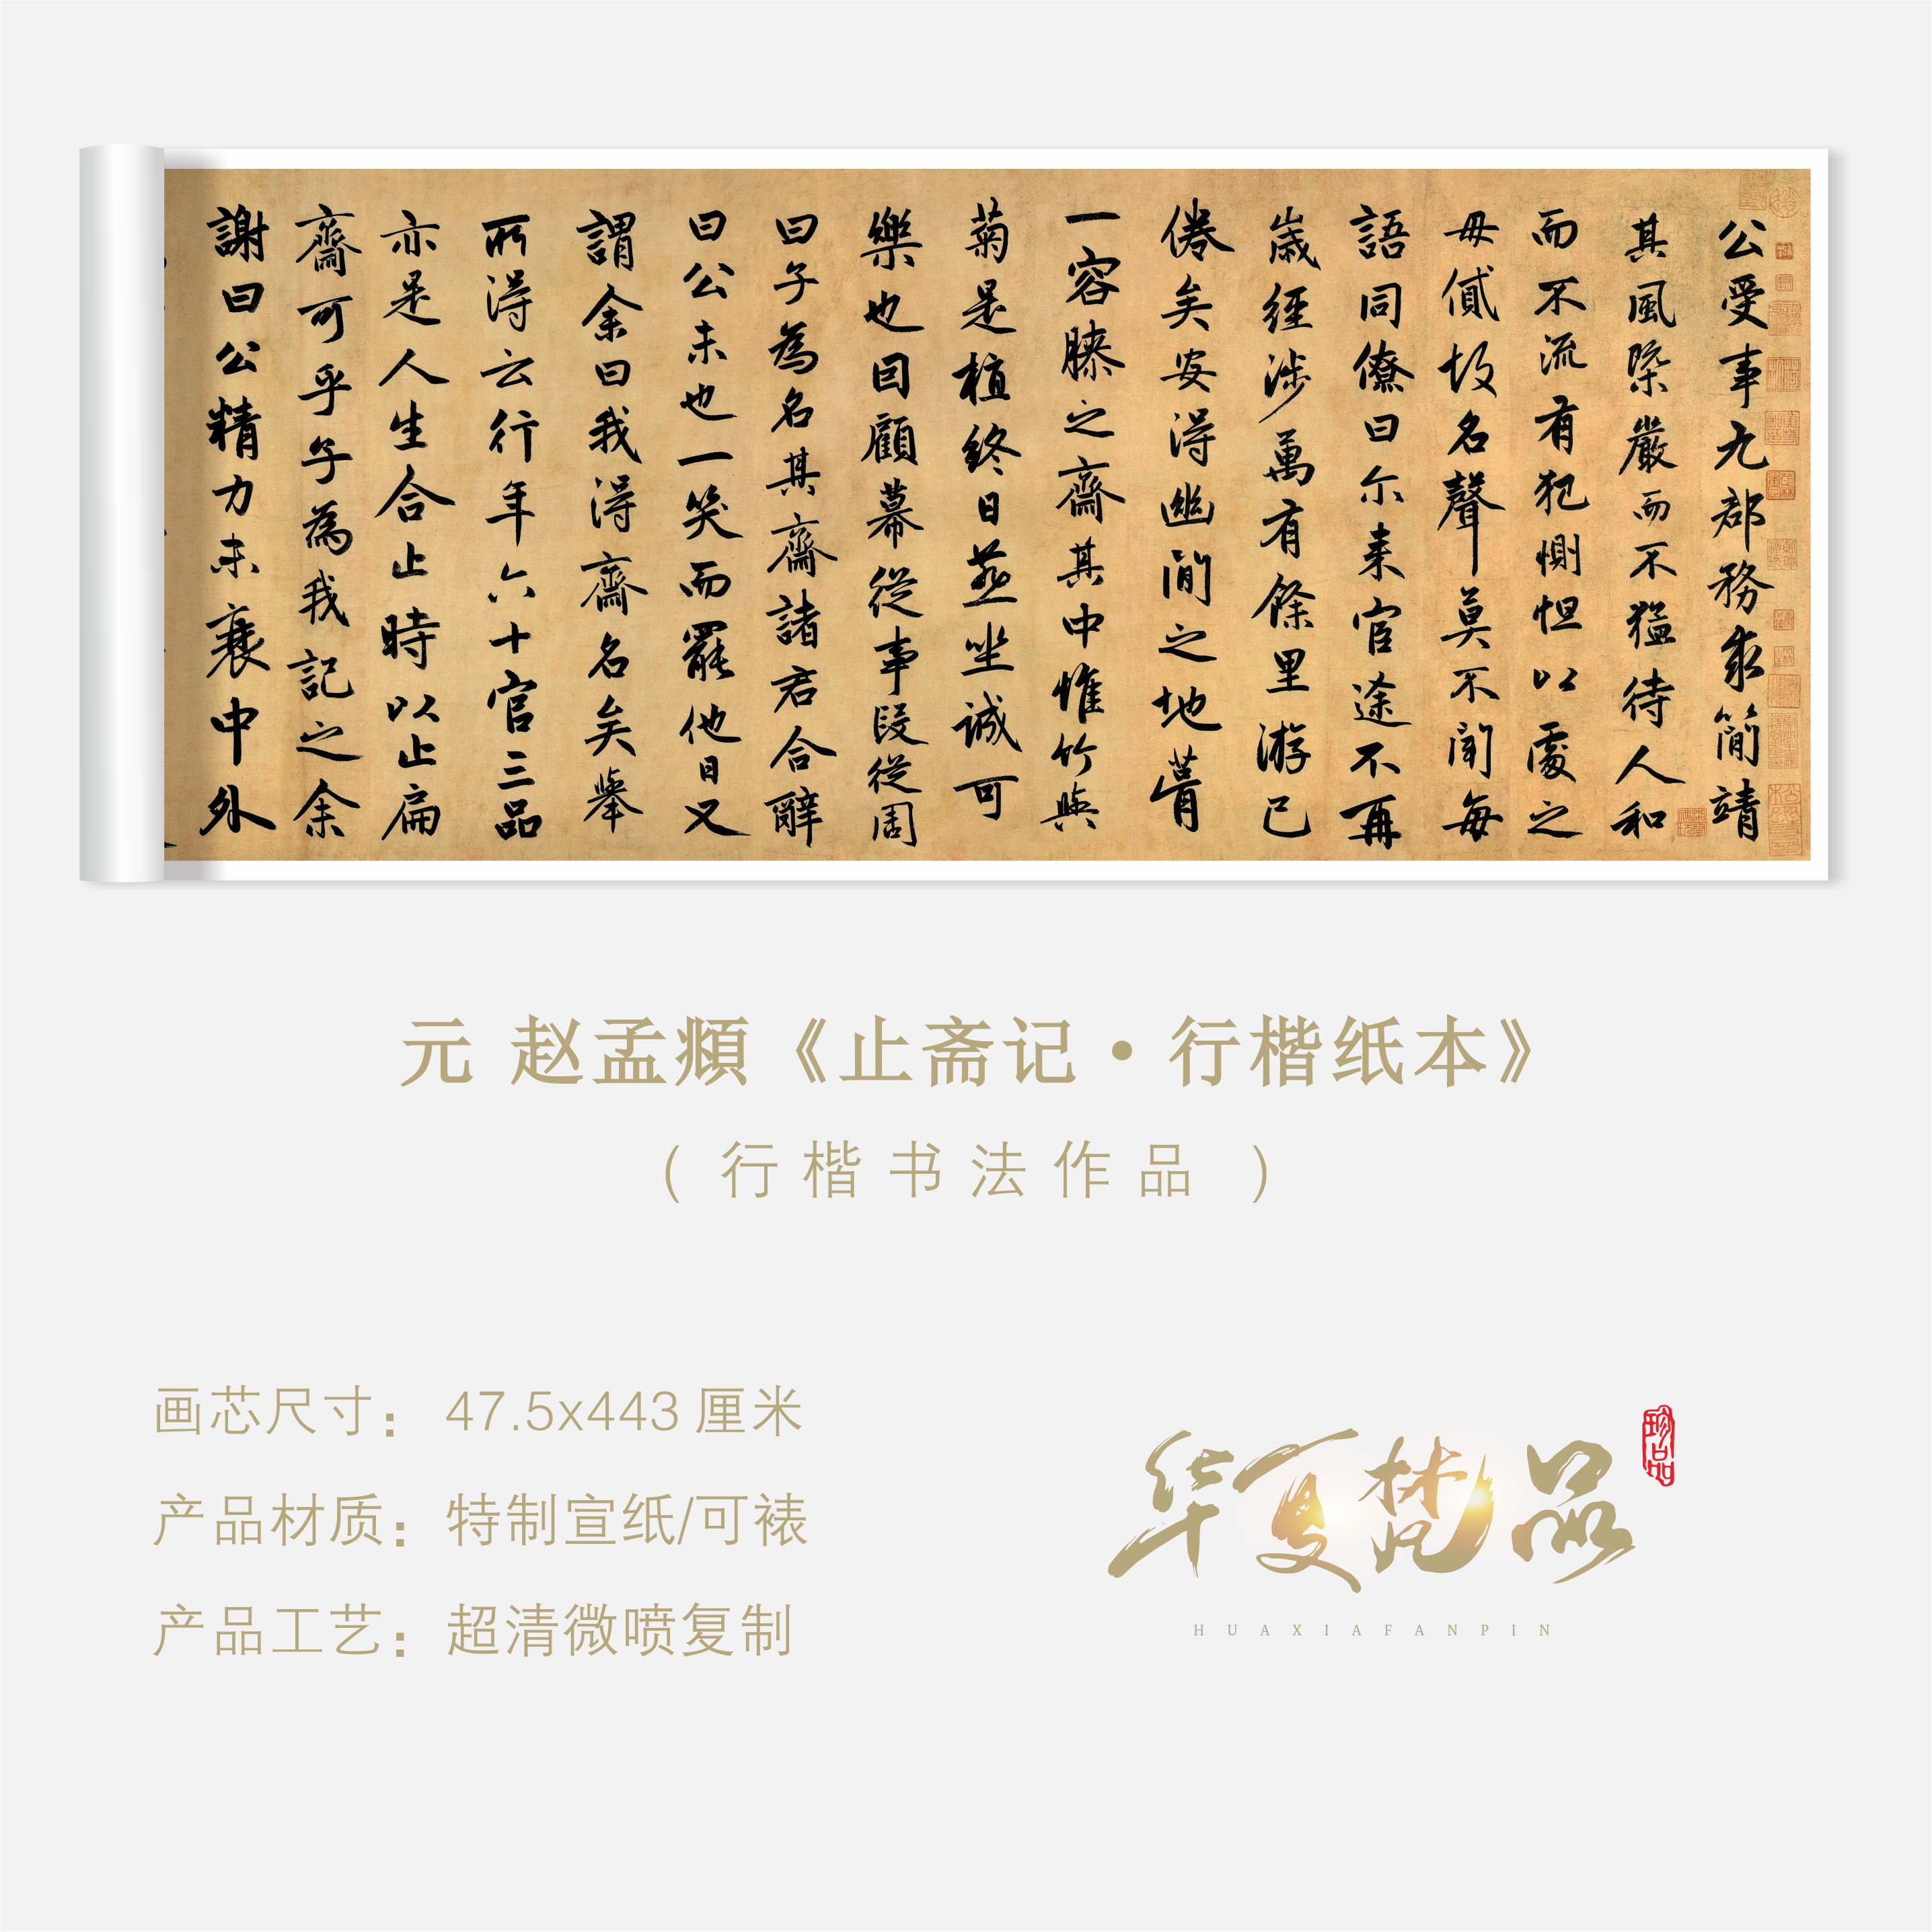 公受事九郡務求簡靖
其風槩嚴而不猛待人和
而不流有犯惻怛以處之
毋貳故名聲莫不聞每
語同僚曰尔来官途不再
歲經涉萬有餘里游已
倦矣安得幽閒之地葺
一容膝之齋其中惟竹與
菊是植終日燕坐誠可
樂也回顧幕從事段從周
曰子為名其齋諸君合辭
曰公未也一笑而罷他日又
謂余曰我得齋名矣舉
所得云行年六十官三品
亦足人生合止時以止扁
齋可乎子為我記之余
謝曰公精力未衰中外
元 赵孟頫《止斋记·行楷纸本》
（行楷书法作品）
画芯尺寸：47.5x443厘米
产品材质：特制宣纸/可裱
产品工艺：超清微喷复制
华夏梵品
珍品
HUAXIAFANPIN